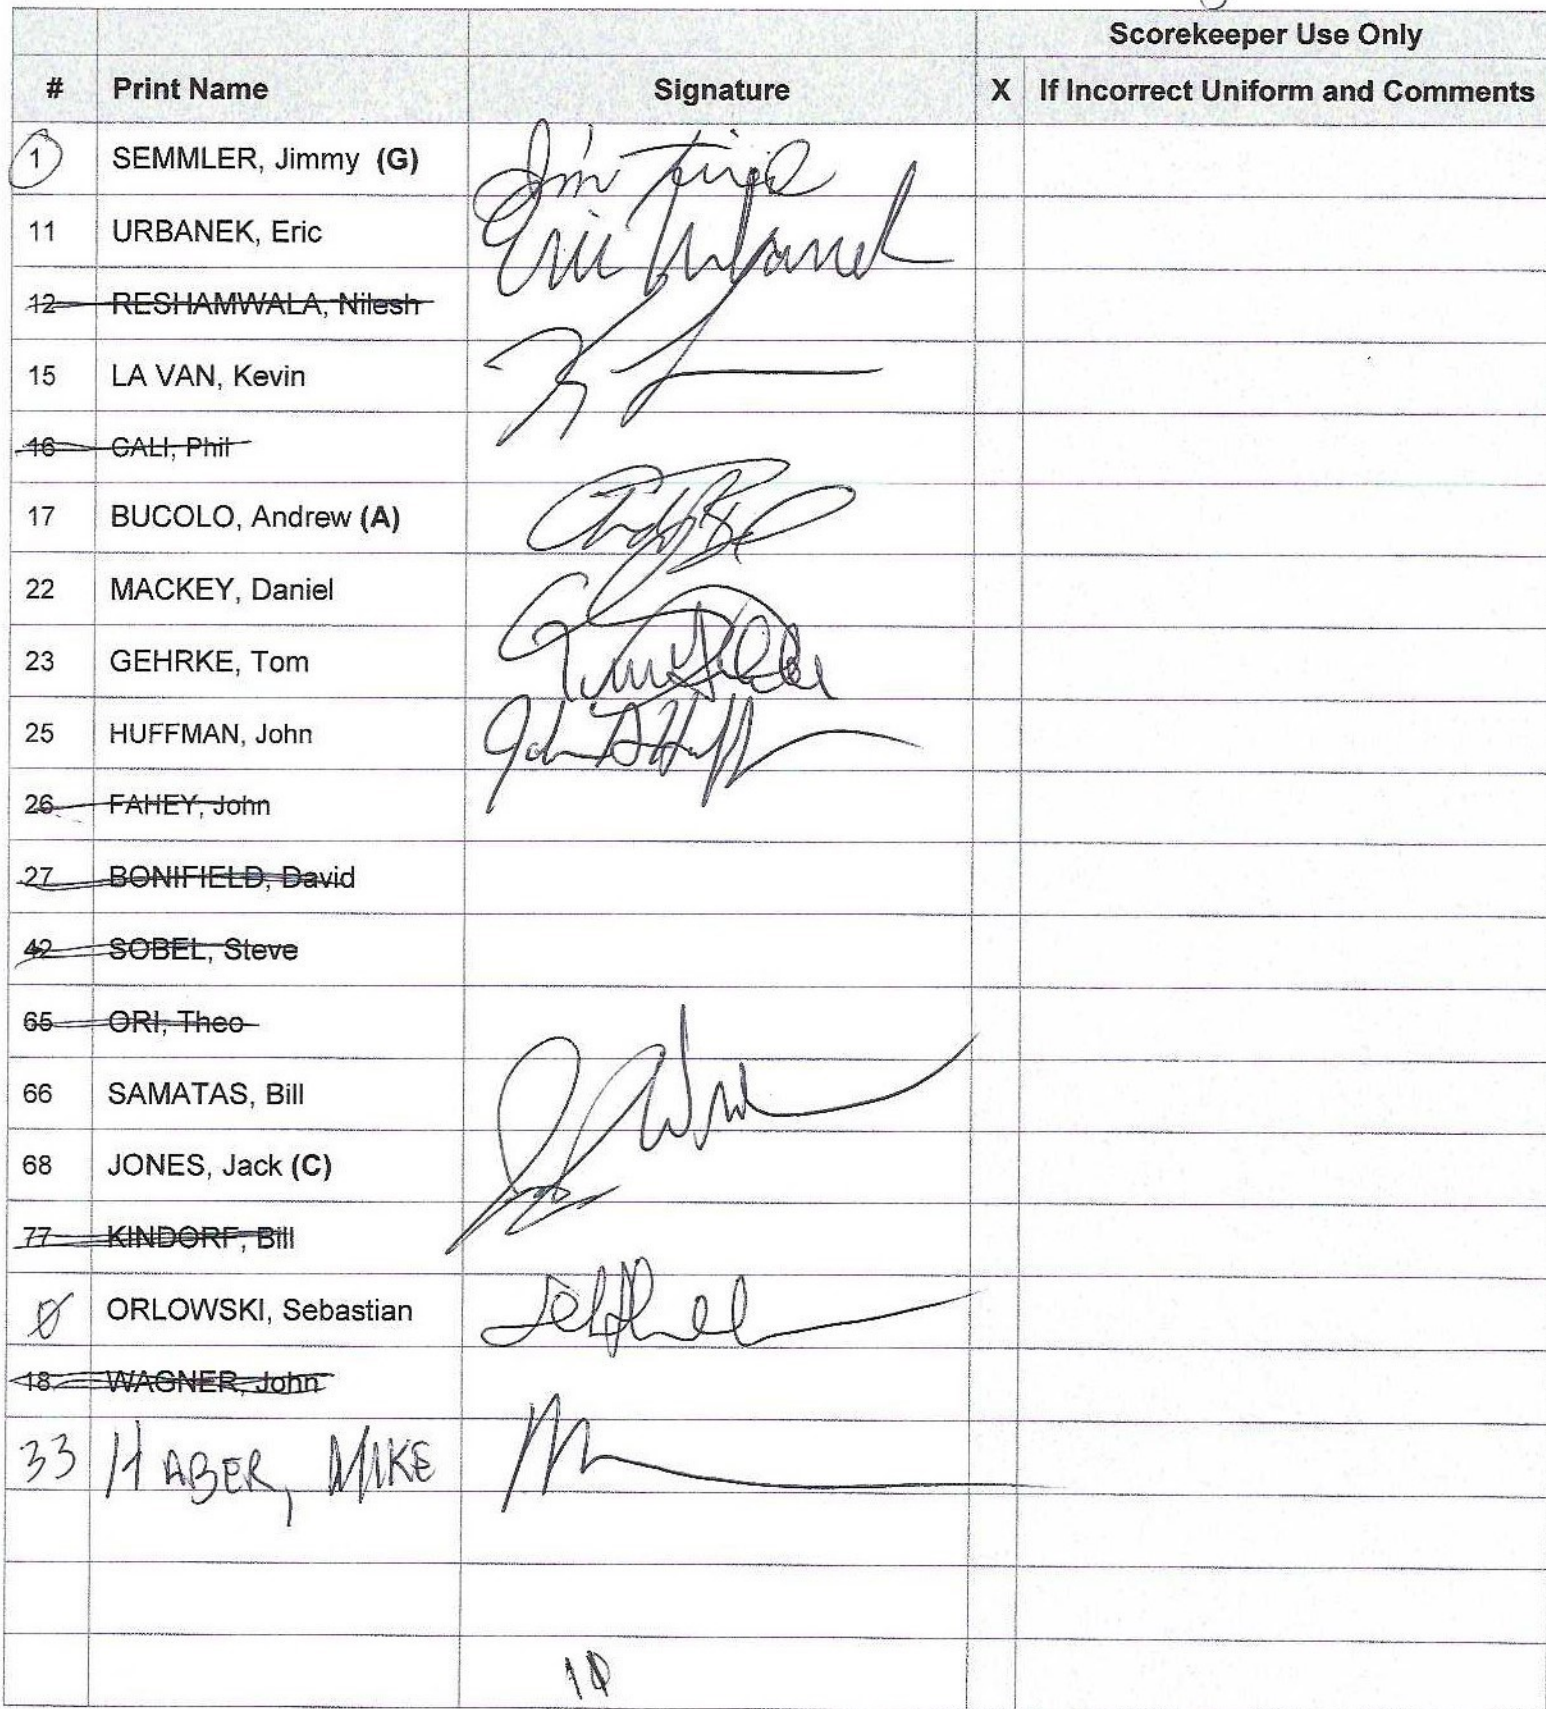 Scorekeeper Use Only
# Print Name Signature X If Incorrect Uniform and Comments
1 SEMMLER, Jimmy (G) I'm Tired
11 URBANEK, Eric Eric Urbanek
12 RESHAMWALA, Nilesh
15 LA VAN, Kevin
16 CALI, Phil
17 BUCOLO, Andrew (A)
22 MACKEY, Daniel
23 GEHRKE, Tom
25 HUFFMAN, John
26 FAHEY, John
27 BONIFIELD, David
42 SOBEL, Steve
65 ORI, Theo
66 SAMATAS, Bill
68 JONES, Jack (C)
77 KINDORF, Bill
0 ORLOWSKI, Sebastian
18 WAGNER, John
33 HABER, MIKE
10